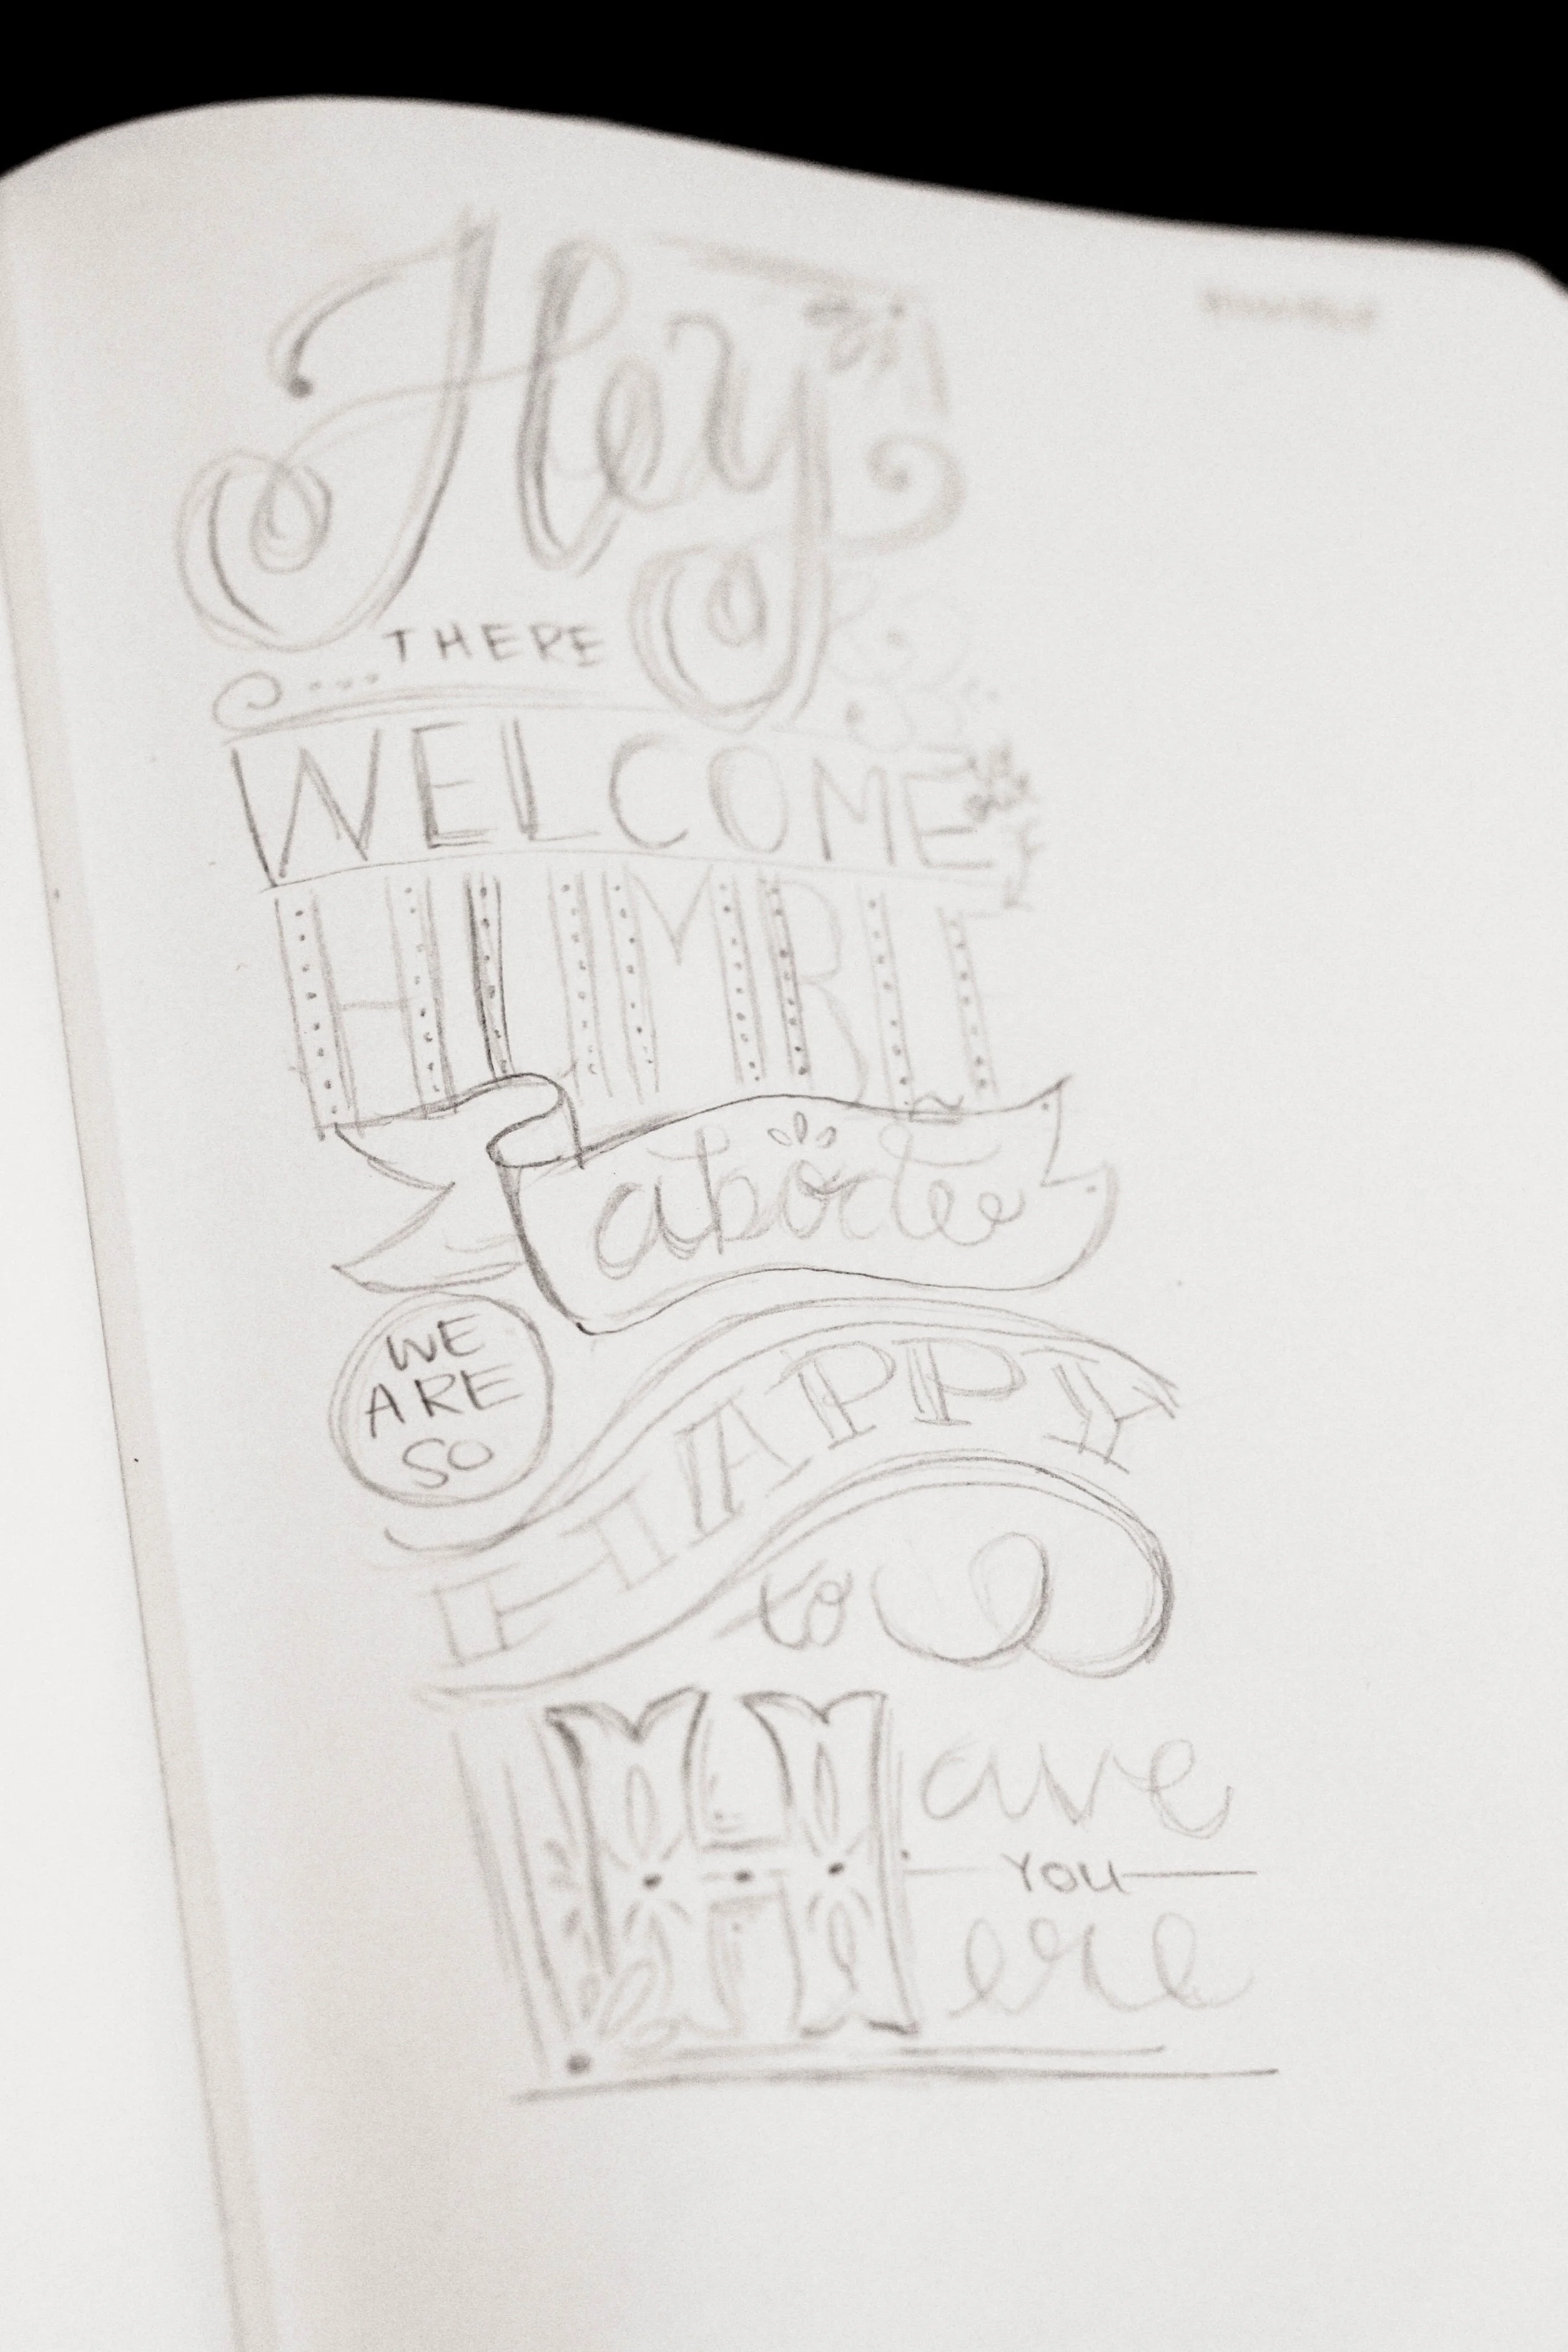 Hey
THERE
WELCOME
HUMBLE
abode
WE
ARE
SO
HAPPY
to
Have
YOU
ere